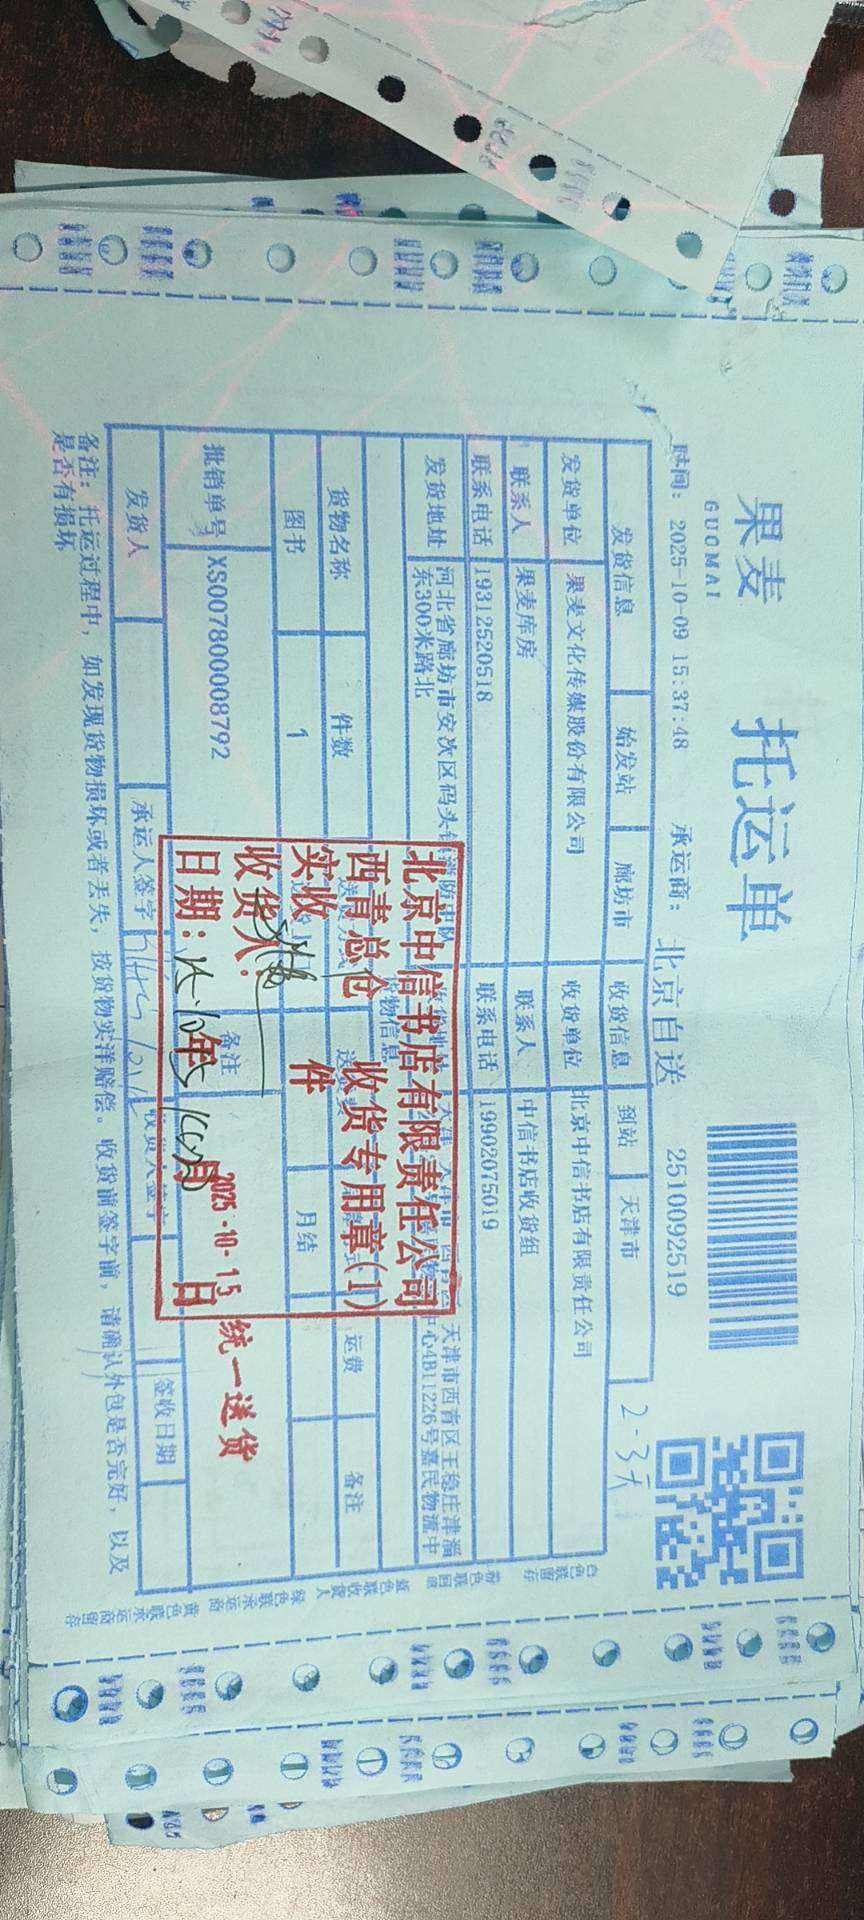 果麦
GUOMAI
托运单
时间: 2025-10-09 15:37:48 承运商: 北京自送 2510092519
2-3天
发货信息 始发站 廊坊市 收货信息 到站 天津市
发货单位 果麦文化传媒股份有限公司 收货单位 北京中信书店有限责任公司
联系人 果麦库房 联系人 中信书店收货组
联系电话 19312520518 联系电话 19902075019
发货地址 河北省廊坊市安次区码头镇
东300米路北
天津市西青区王稳庄津淄
中心4B11226号嘉民物流中
货物信息
货物名称 件数 运费 备注
图书 1 月结
批销单号 XS007800008792 备注
统一送货
发货人 承运人签字 收货人签字 签收日期
备注: 托运过程中, 如发现货物损坏或者丢失, 按货物实洋赔偿。收货前签字前, 请确认外包是否完好, 以及
是否有损坏
北京中信书店有限责任公司
西青总仓 收货专用章(1)
实收 件
收货人:
2025-10-15
日期: 年 月 日
白色联留存
粉色联回单
蓝色联收货人
绿色联承运商
黄色联承运商留存